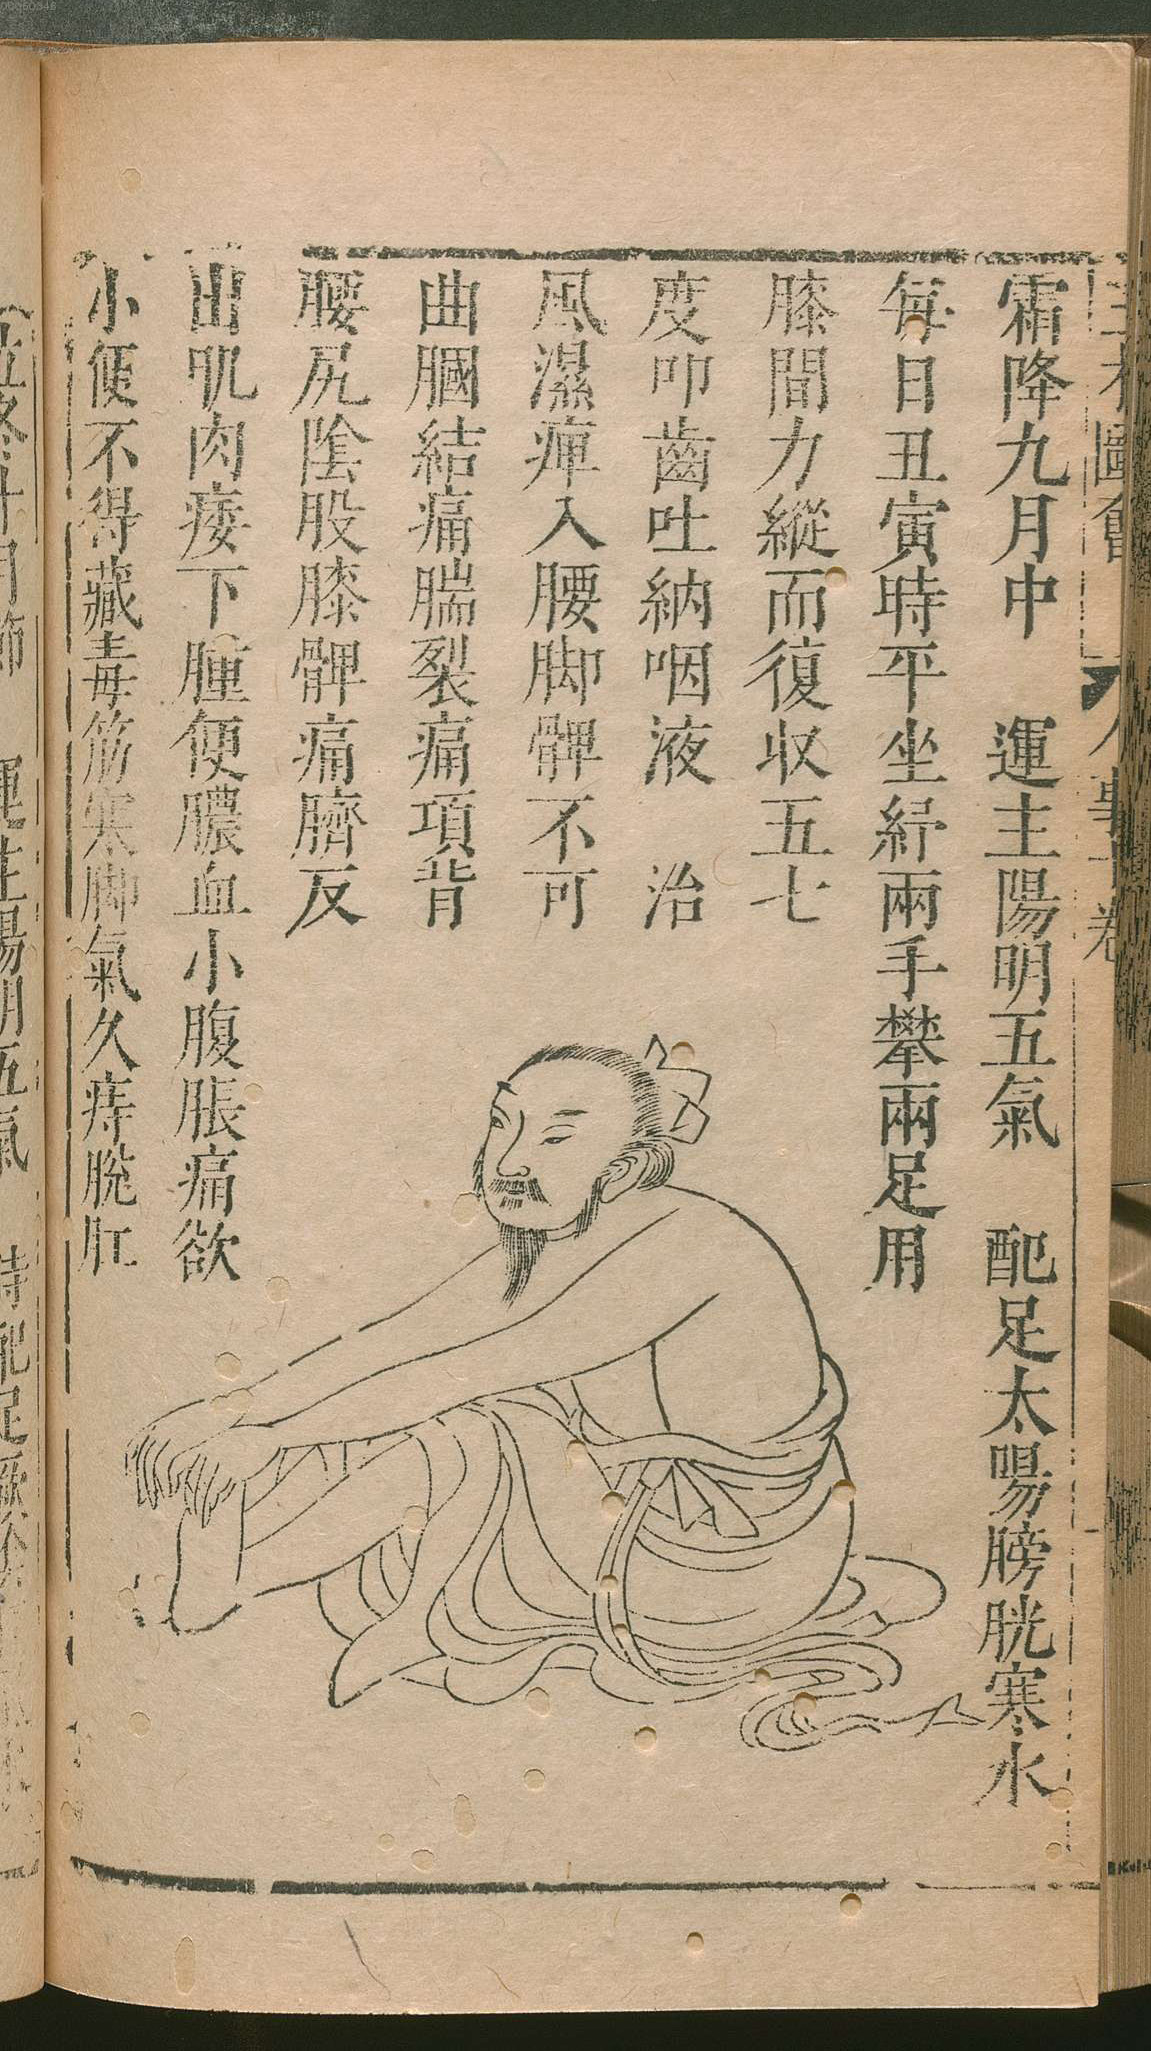 霜降九月中　運主陽明五氣　配足太陽膀胱寒水
每日丑寅時平坐紓兩手攀兩足用
膝間力縱而復收五七
度叩齒吐納咽液　治
風濕痺入腰脚髀不可
曲膕結痛腨裂痛項背
腰尻陰股膝髀痛臍反
出肌肉痿下腫便膿血小腹脹痛欲
小便不得藏毒筋寒脚氣久痔脫肛